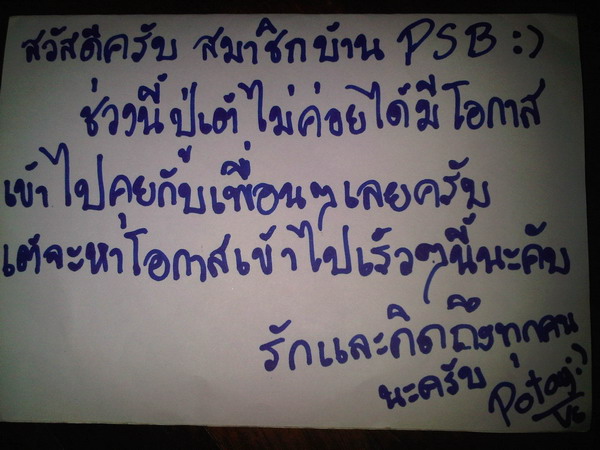 สวัสดีครับ สมาชิกบ้าน PSB :)
ช่วงนี้ปู่เต้ไม่ค่อยได้มีโอกาส
เข้าไปคุยกับเพื่อนๆเลยครับ
เต้จะหาโอกาสเข้าไปเร็วๆนี้นะคับ
รักและคิดถึงทุกคน
นะครับ